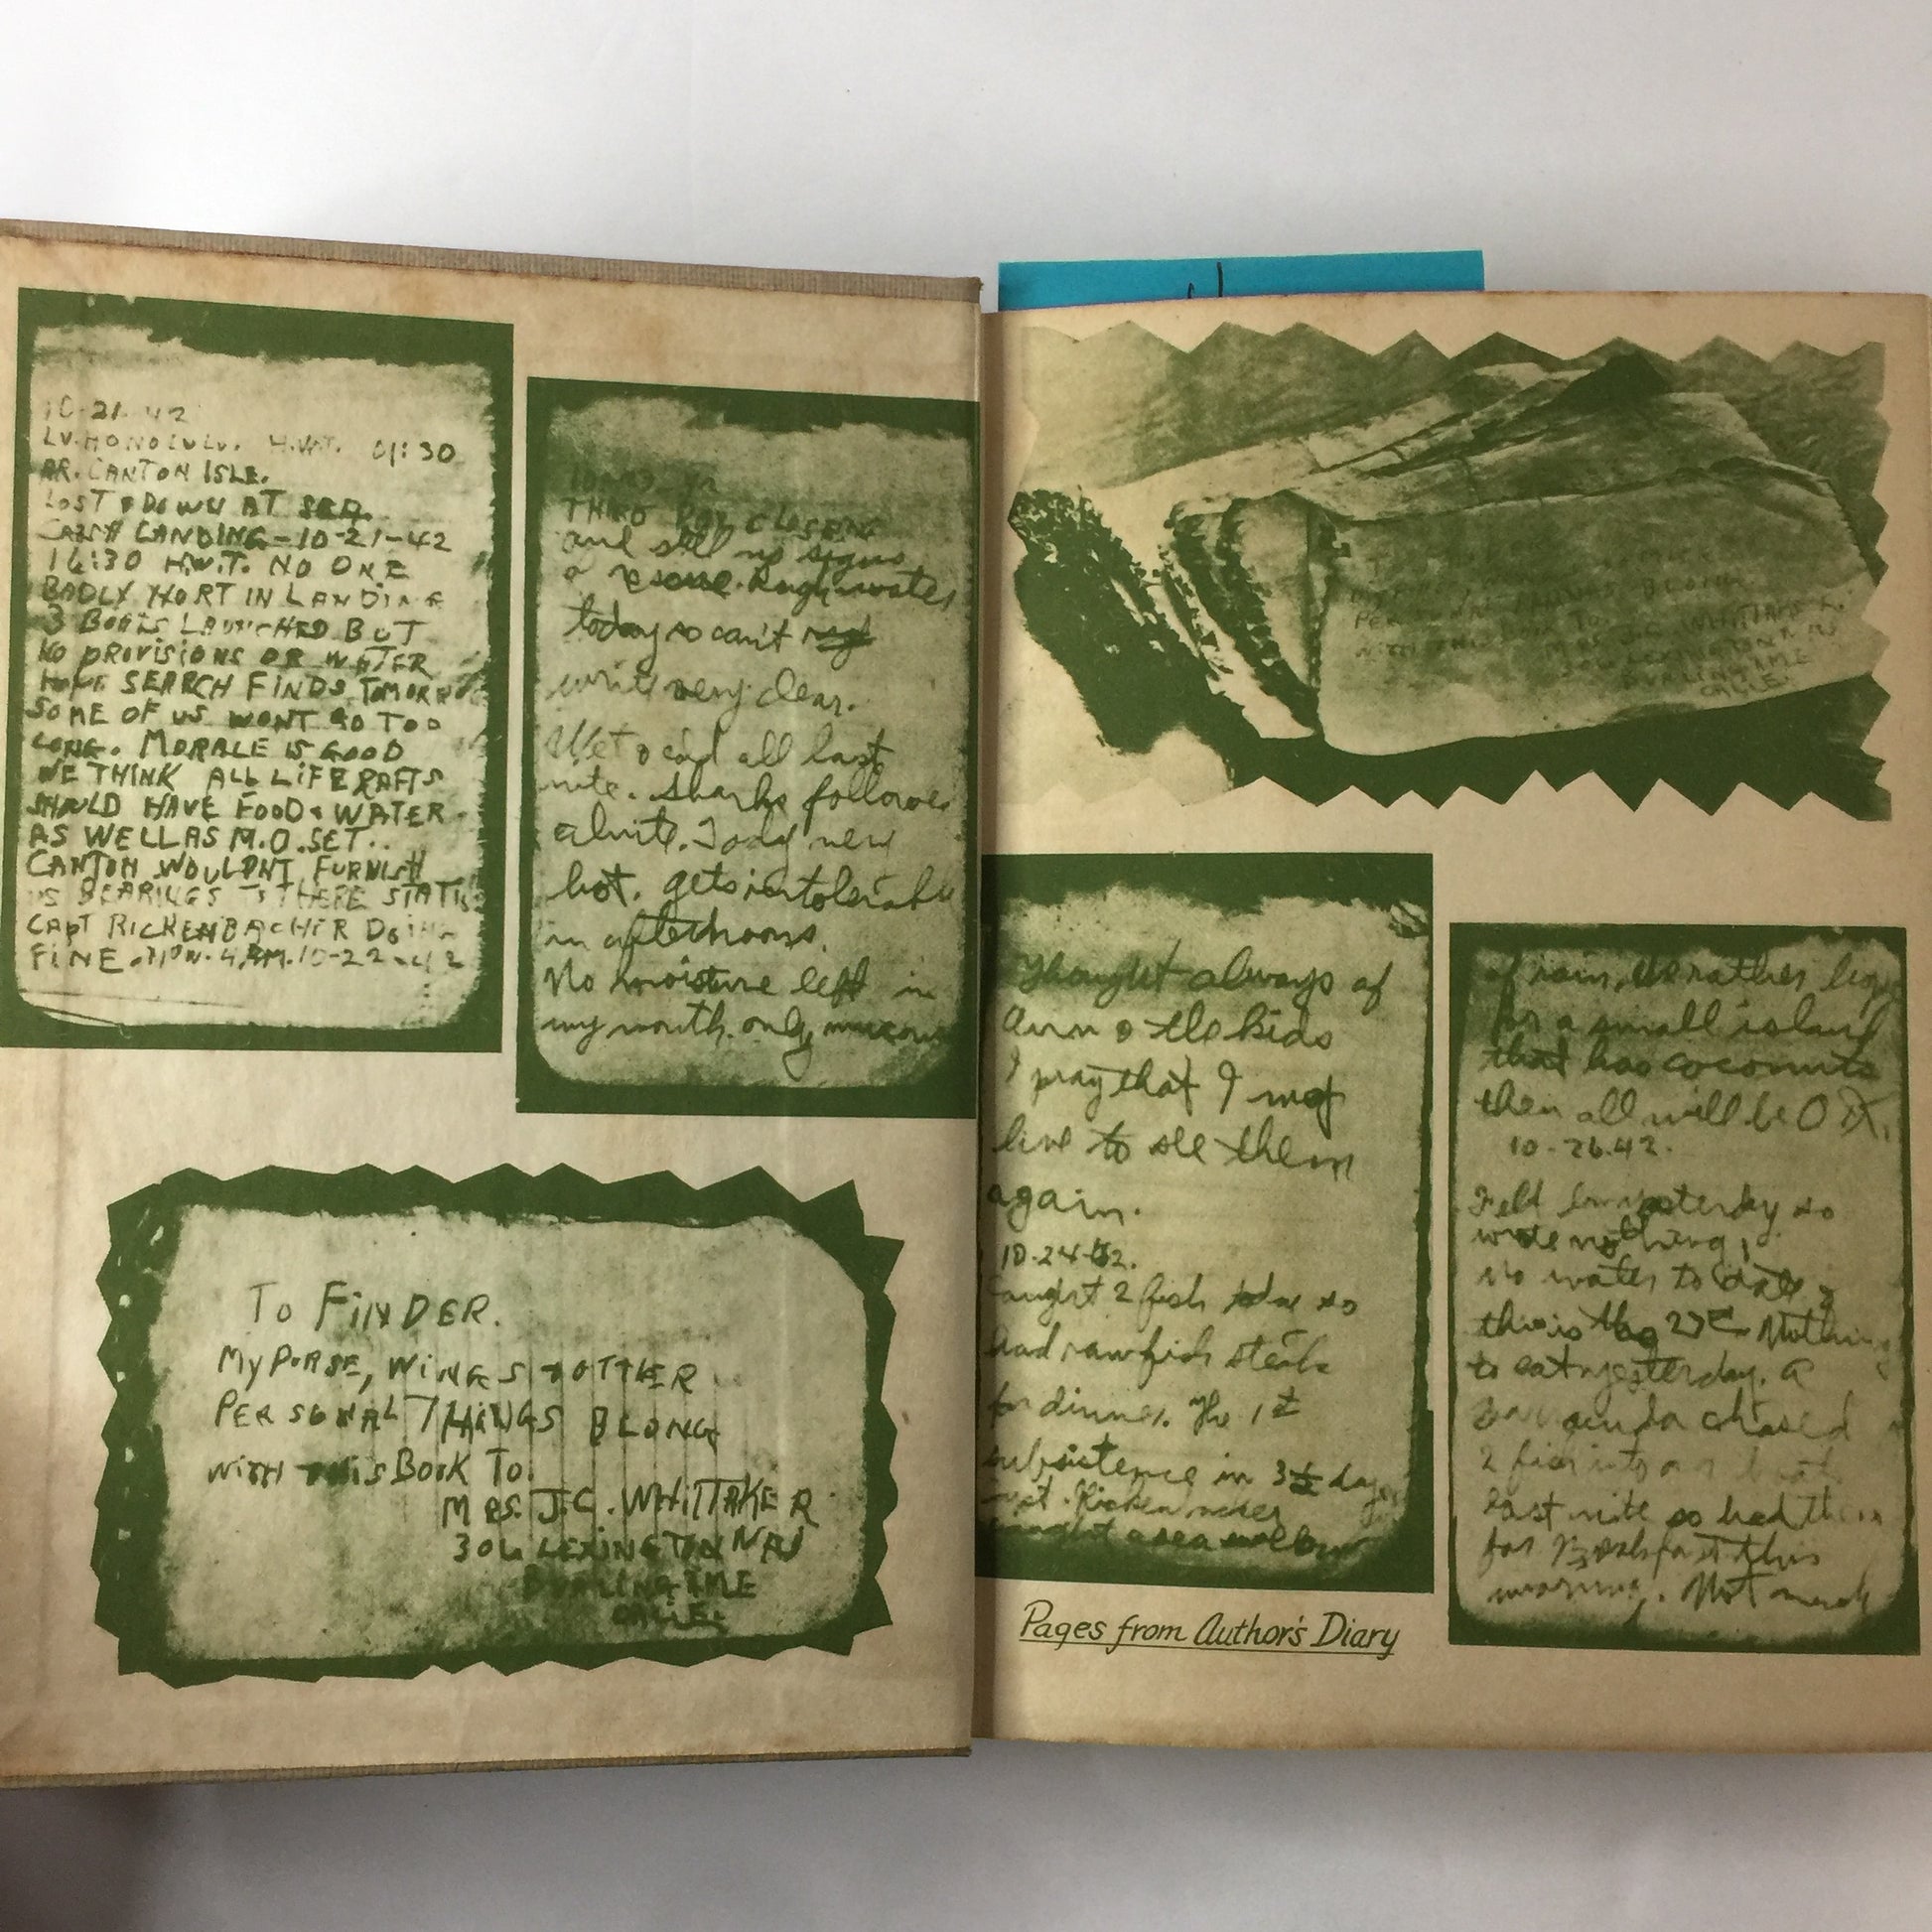 10-21-42
LV. HONOLULU. H.W.T. 01:30
AR. CANTON ISLE.
LOST & DOWN AT SEA.
CRASH LANDING-10-21-42
16:30 H.W.T. NO ONE
BADLY HORT IN LANDING
3 BOATS LAUNCHED BUT
NO PROVISIONS OR WATER
HOPE SEARCH FINDS TOMORROW
SOME OF US WONT GO TOO
LONG. MORALE IS GOOD
WE THINK ALL LIFE RAFTS
SHOULD HAVE FOOD & WATER
AS WELL AS M.O. SET..
CANTON WOULDNT FURNISH
US BEARINGS TO THERE STATION
CAPT RICKENBACHER DOING
FINE. 4PM. 10-22-42
THIRD DAY CLOSING
and still no signs
o rescue. Rough water
today so can't
write very clear.
Wet & cold all last
nite. Sharks followed
all nite. Today very
hot. gets intolerable
in afternoons.
No moisture left in
my mouth. only mucous
TO FINDER.
MY PURSE, WINGS & OTHER
PERSONAL THINGS BLONG
WITH THIS BOOK TO.
MRS. J.C. WHITTAKER
306 LEXINGTON
BURLINGAME
CALIF.
PERSONAL THINGS BLONG
WITH THIS BOOK TO.
MRS J.C. WHITTAKER
306 LEXINGTON
BURLINGAME
CALIF.
Thought always of
Ann & the kids
I pray that I may
live to see them
again.
10-24-42.
Caught 2 fish so
had raw fish steak
for dinner. The 1st
subsistence in 3½ days
caught a sea swallow
Pages from Author's Diary
of rain, or rather
for a small island
that has coconuts
then all will be O.K.
10-26-42.
Felt low yesterday so
wrote nothing.
No water to date &
this is the Nothing
to eat yesterday. A
Barracuda chased
2 fish into our boat
last nite so had them
for Breakfast this
morning. Not much